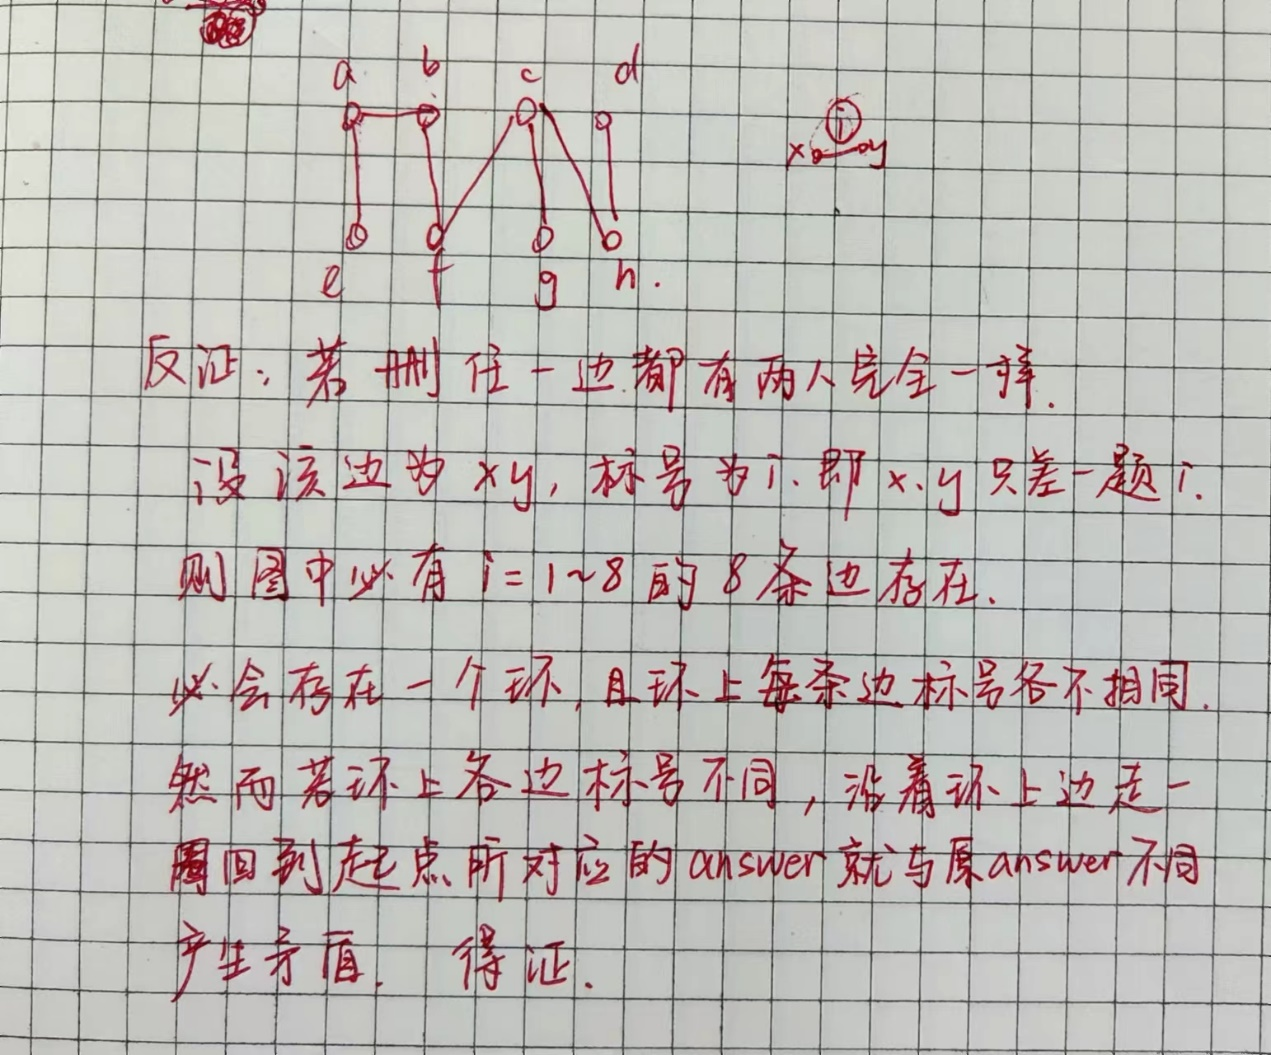 a b c d
i
x y
e f g h.
反证：若删任一边都有两人完全一样.
设该边为xy, 标号为i. 即x.y只差一题i.
则图中必有i=1~8的8条边存在.
必会存在一个环, 且环上每条边标号各不相同.
然而若环上各边标号不同, 沿着环上边走一
圈回到起点所对应的answer就与原answer不同
产生矛盾. 得证.